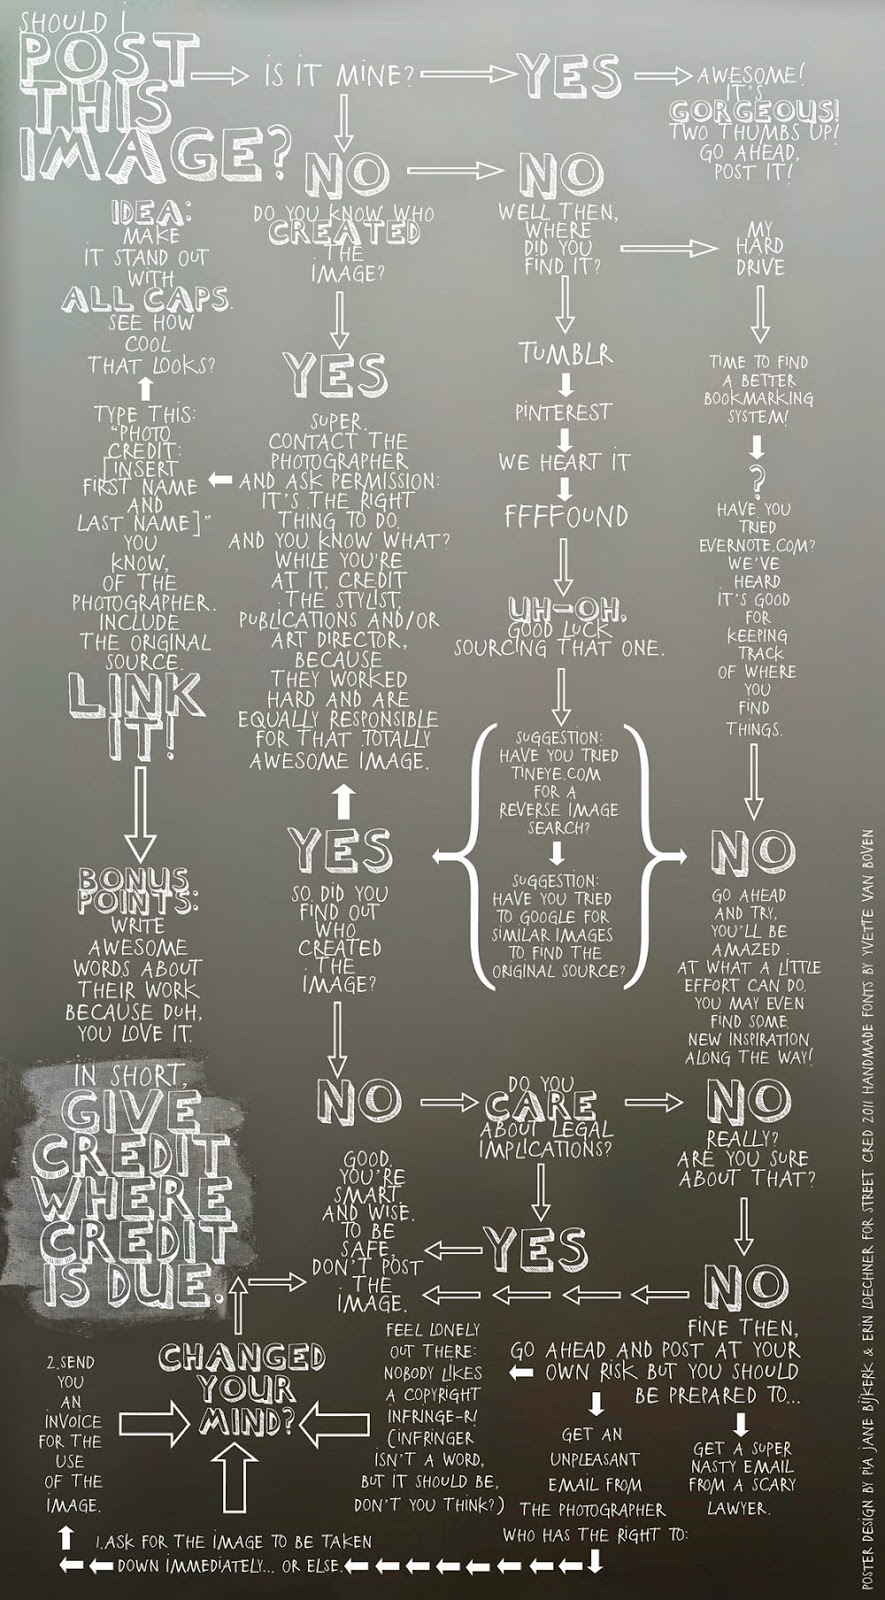 SHOULD I
POST
THIS
IMAGE?
IS IT MINE?
YES
AWESOME!
IT'S
GORGEOUS!
TWO THUMBS UP!
GO AHEAD,
POST IT!
NO
DO YOU KNOW WHO
CREATED
THE
IMAGE?
NO
WELL THEN,
WHERE
DID YOU
FIND IT?
MY
HARD
DRIVE
TIME TO FIND
A BETTER
BOOKMARKING
SYSTEM!
?
HAVE YOU
TRIED
EVERNOTE.COM?
WE'VE
HEARD
IT'S GOOD
FOR
KEEPING
TRACK
OF WHERE
YOU
FIND
THINGS.
TUMBLR
PINTEREST
WE HEART IT
FFFFOUND
UH-OH,
GOOD LUCK
SOURCING THAT ONE.
SUGGESTION:
HAVE YOU TRIED
TINEYE.COM
FOR A
REVERSE IMAGE
SEARCH?
SUGGESTION:
HAVE YOU TRIED
TO GOOGLE FOR
SIMILAR IMAGES
TO FIND THE
ORIGINAL SOURCE?
NO
GO AHEAD
AND TRY,
YOU'LL BE
AMAZED
AT WHAT A LITTLE
EFFORT CAN DO.
YOU MAY EVEN
FIND SOME
NEW INSPIRATION
ALONG THE WAY!
YES
SUPER.
CONTACT THE
PHOTOGRAPHER
AND ASK PERMISSION:
IT'S THE RIGHT
THING TO DO.
AND YOU KNOW WHAT?
WHILE YOU'RE
AT IT, CREDIT
THE STYLIST,
PUBLICATIONS AND/OR
ART DIRECTOR,
BECAUSE
THEY WORKED
HARD AND ARE
EQUALLY RESPONSIBLE
FOR THAT TOTALLY
AWESOME IMAGE.
YES
SO, DID YOU
FIND OUT
WHO
CREATED
THE
IMAGE?
IDEA:
MAKE
IT STAND OUT
WITH
ALL CAPS.
SEE HOW
COOL
THAT LOOKS?
TYPE THIS:
"PHOTO
CREDIT:
[INSERT
FIRST NAME
AND
LAST NAME]"
YOU
KNOW,
OF THE
PHOTOGRAPHER.
INCLUDE
THE ORIGINAL
SOURCE.
LINK
IT!
BONUS
POINTS:
WRITE
AWESOME
WORDS ABOUT
THEIR WORK
BECAUSE DUH,
YOU LOVE IT.
IN SHORT,
GIVE
CREDIT
WHERE
CREDIT
IS DUE.
NO
DO YOU
CARE
ABOUT LEGAL
IMPLICATIONS?
NO
REALLY?
ARE YOU SURE
ABOUT THAT?
YES
GOOD,
YOU'RE
SMART.
AND WISE.
TO BE
SAFE,
DON'T POST
THE
IMAGE.
FEEL LONELY
OUT THERE:
NOBODY LIKES
A COPYRIGHT
INFRINGE-R!
(INFRINGER
ISN'T A WORD,
BUT IT SHOULD BE,
DON'T YOU THINK?)
NO
FINE THEN,
GO AHEAD AND POST AT YOUR
OWN RISK BUT YOU SHOULD
BE PREPARED TO...
GET A SUPER
NASTY EMAIL
FROM A SCARY
LAWYER.
GET AN
UNPLEASANT
EMAIL FROM
THE PHOTOGRAPHER
WHO HAS THE RIGHT TO:
1.ASK FOR THE IMAGE TO BE TAKEN
DOWN IMMEDIATELY... OR ELSE.
2.SEND
YOU
AN
INVOICE
FOR THE
USE
OF THE
IMAGE.
CHANGED
YOUR
MIND?
POSTER DESIGN BY PIA JANE BIJKERK & ERIN LOECHNER FOR STREET CRED 2011 HANDMADE FONTS BY YVETTE VAN BOVEN